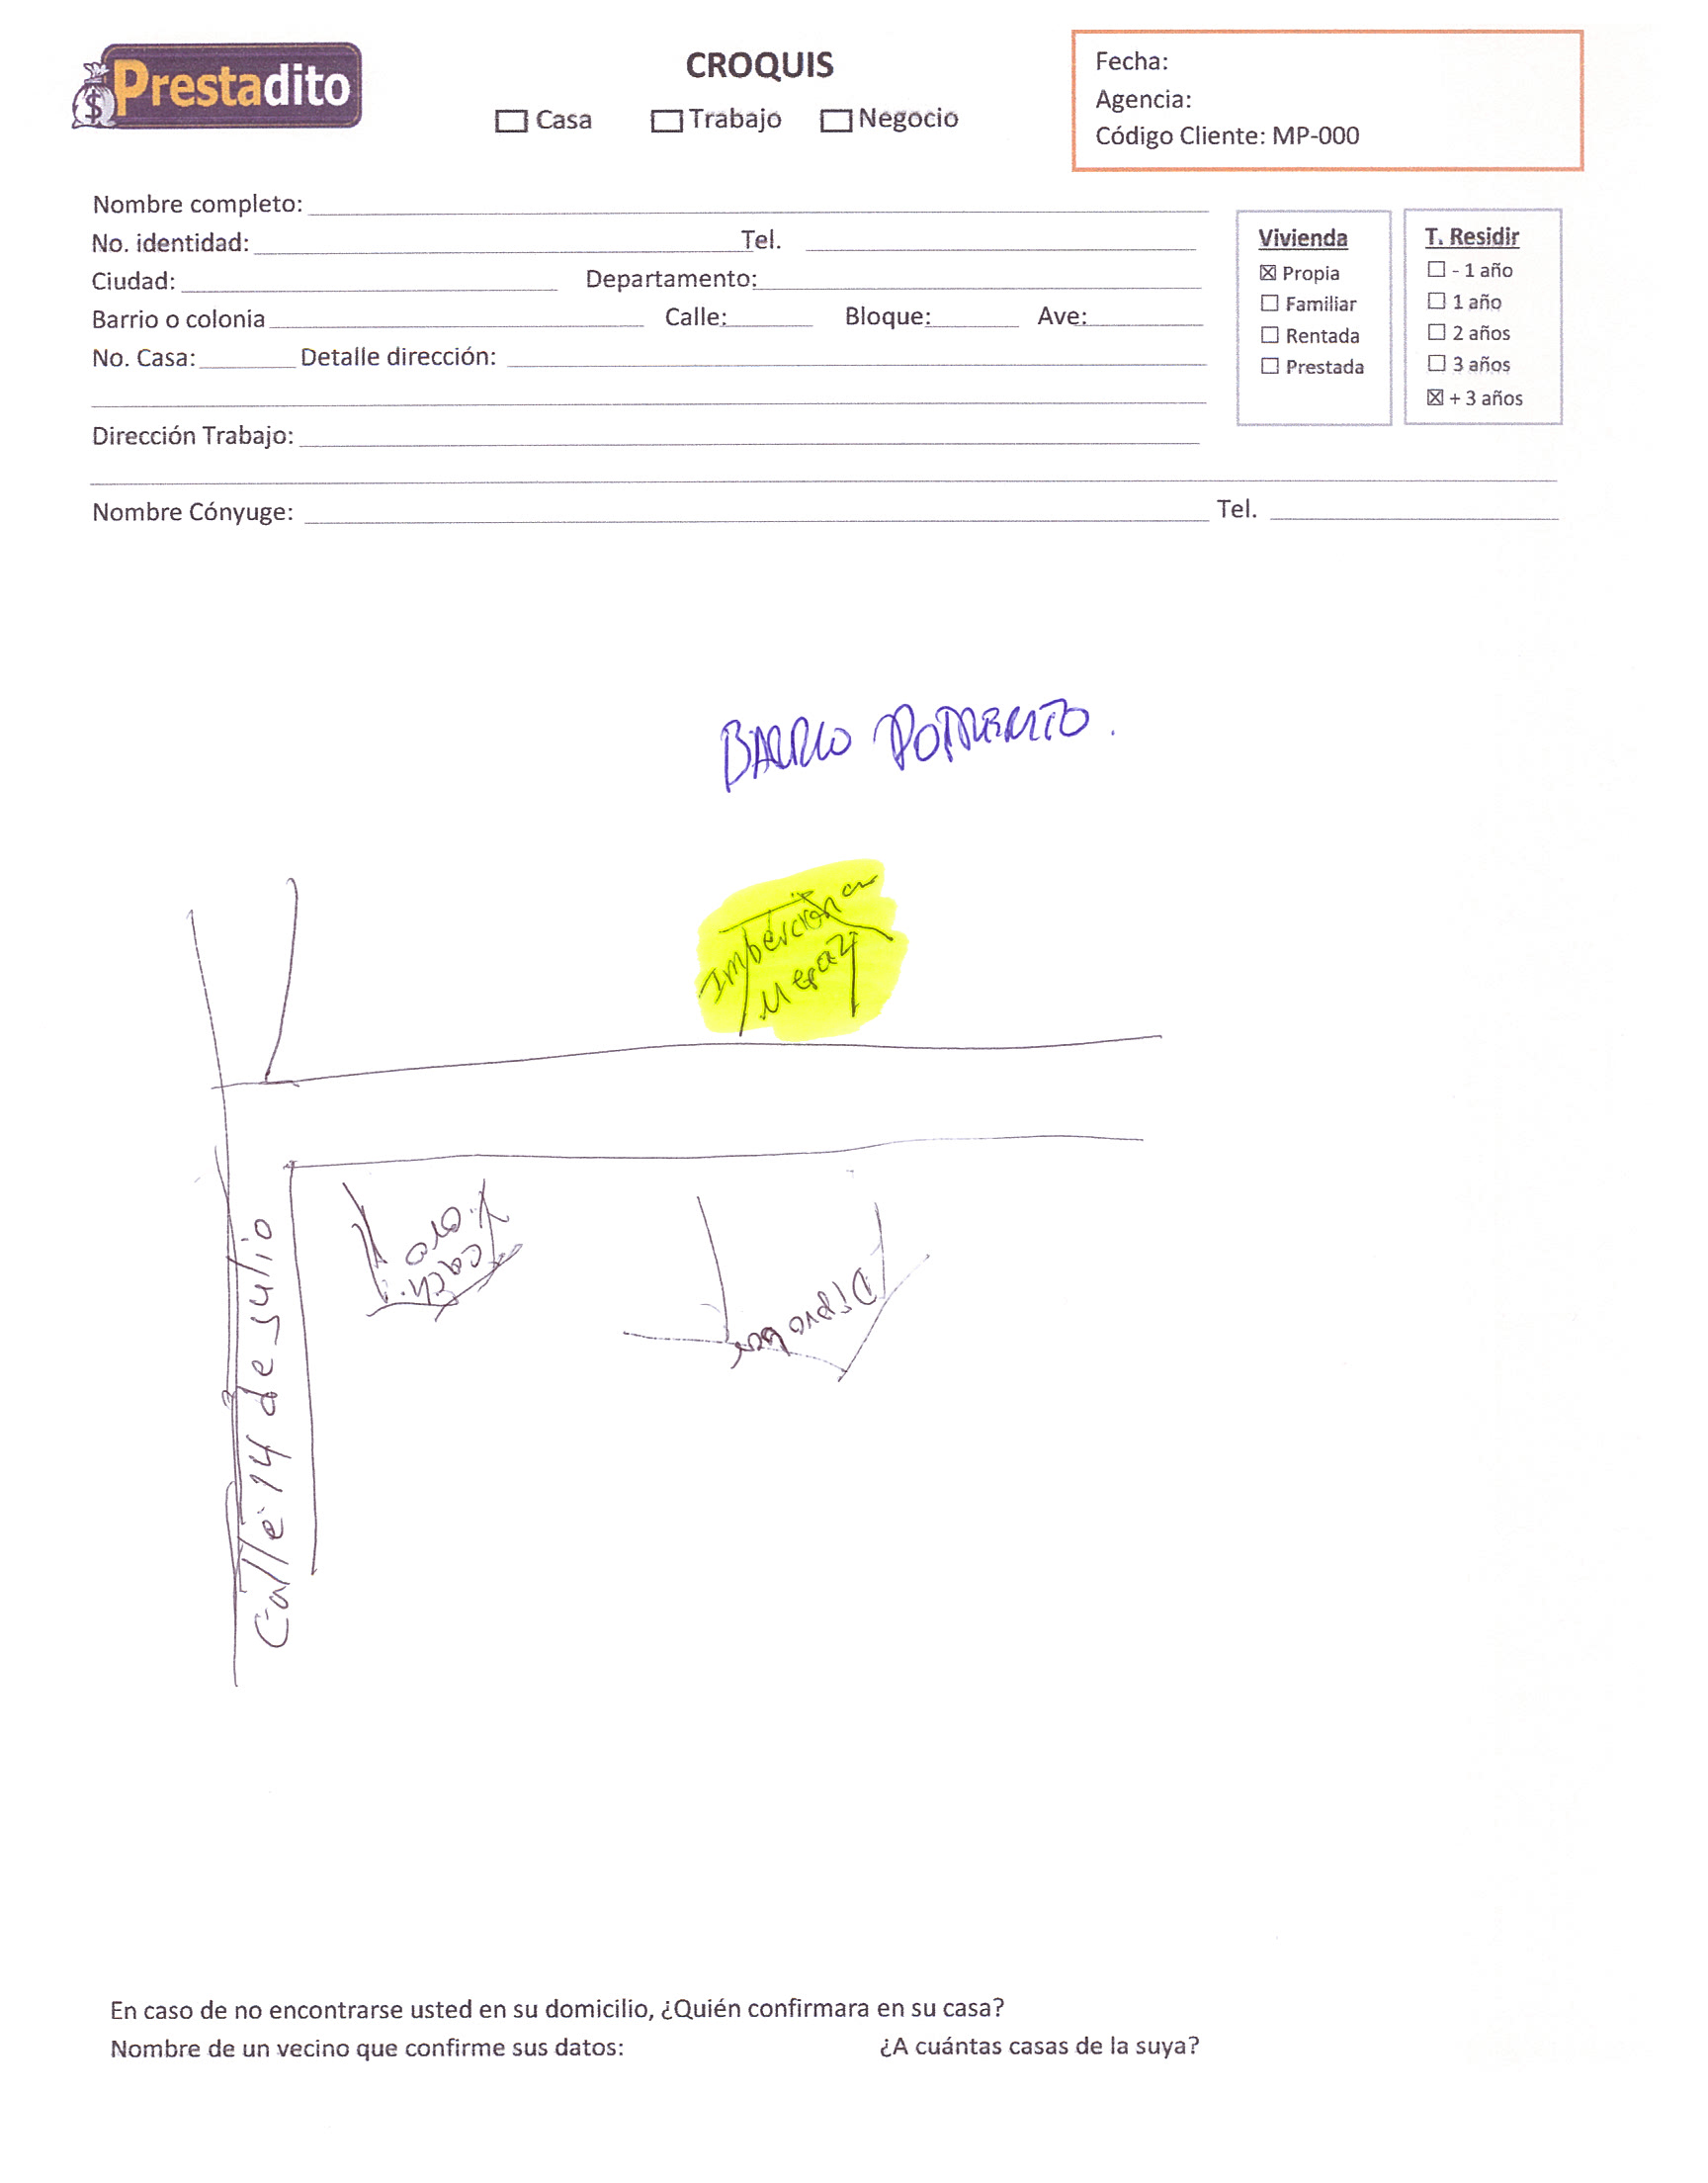 Prestadito
CROQUIS
☐ Casa ☐ Trabajo ☐ Negocio
Fecha:
Agencia:
Código Cliente: MP-000
Nombre completo:
No. identidad: Tel.
Ciudad: Departamento:
Barrio o colonia Calle: Bloque: Ave:
No. Casa: Detalle dirección:
Dirección Trabajo:
Nombre Cónyuge: Tel.
Vivienda
☒ Propia
☐ Familiar
☐ Rentada
☐ Prestada
T. Residir
☐ - 1 año
☐ 1 año
☐ 2 años
☐ 3 años
☒ + 3 años
BARRIO POTRERITO.
Calle 14 de Julio
En caso de no encontrarse usted en su domicilio, ¿Quién confirmara en su casa?
Nombre de un vecino que confirme sus datos: ¿A cuántas casas de la suya?